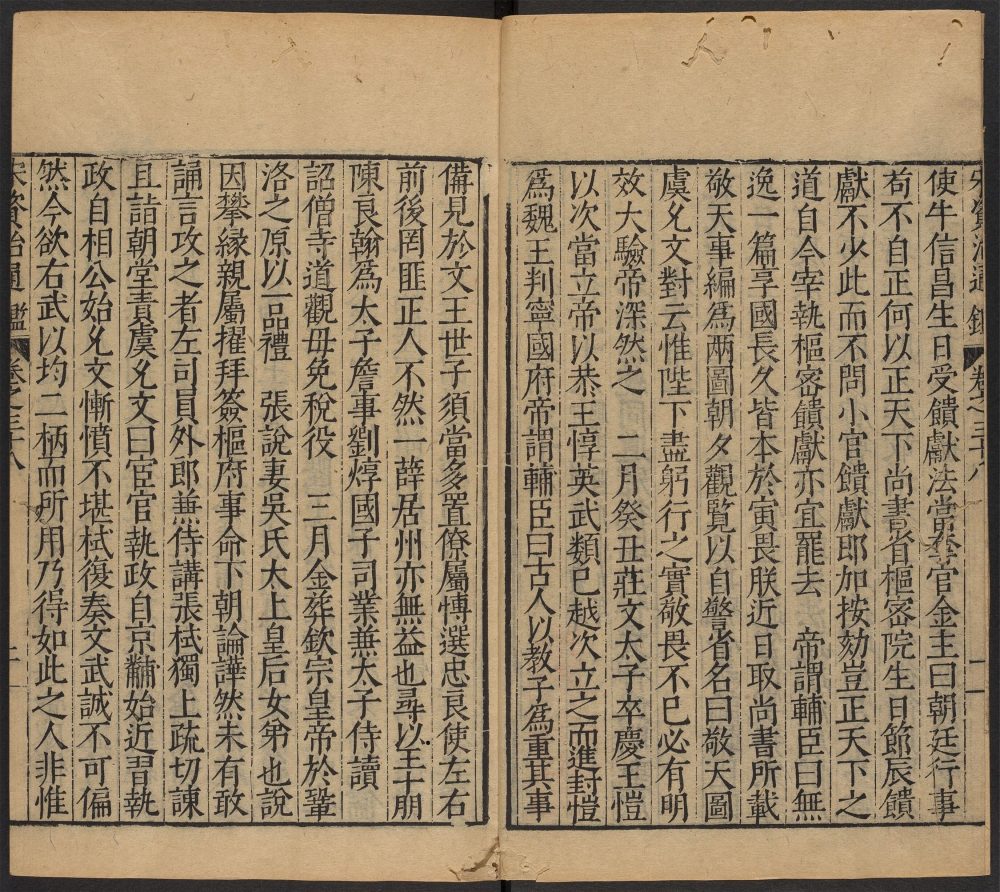 宋資治通鑑 卷之三十八 二
使牛信昌生日受饋獻法當奪官金主曰朝廷行事
苟不自正何以正天下尚書省樞密院生日節辰饋
獻不少此而不問小官饋獻即加按劾豈正天下之
道自今宰執樞密饋獻亦宜罷去 帝謂輔臣曰無
逸一篇享國長久皆本於寅畏朕近日取尚書所載
敬天事編爲兩圖朝夕觀覽以自警省名曰敬天圖
虞允文對云惟陛下盡躬行之實敬畏不已必有明
效大驗帝深然之 二月癸丑莊文太子卒慶王愷
以次當立帝以恭王惇英武類已越次立之而進封愷
爲魏王判寧國府帝謂輔臣曰古人以教子爲重其事
備見於文王世子須當多置僚屬博選忠良使左右
前後罔匪正人不然一薛居州亦無益也尋以王十朋
陳良翰爲太子詹事劉焞國子司業兼太子侍讀
詔僧寺道觀毋免稅役 三月金葬欽宗皇帝於鞏
洛之原以一品禮 張說妻吳氏太上皇后女弟也說
因攀緣親屬擢拜簽樞府事命下朝論譁然未有敢
誦言攻之者左司員外郎兼侍講張栻獨上疏切諫
且詣朝堂責虞允文曰宦官執政自京黼始近習執
政自相公始允文慚憤不堪栻復奏文武誠不可偏
然今欲右武以均二柄而所用乃得如此之人非惟
宋資治通鑑 卷之三十八 二